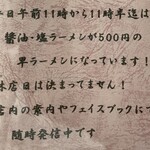 日午前11時から11時半迄は
醤油・塩ラーメンが500円の
早ラーメンになっています!
本店日は決まってません!
店内の案内やフェイスブックにて
随時発信中です